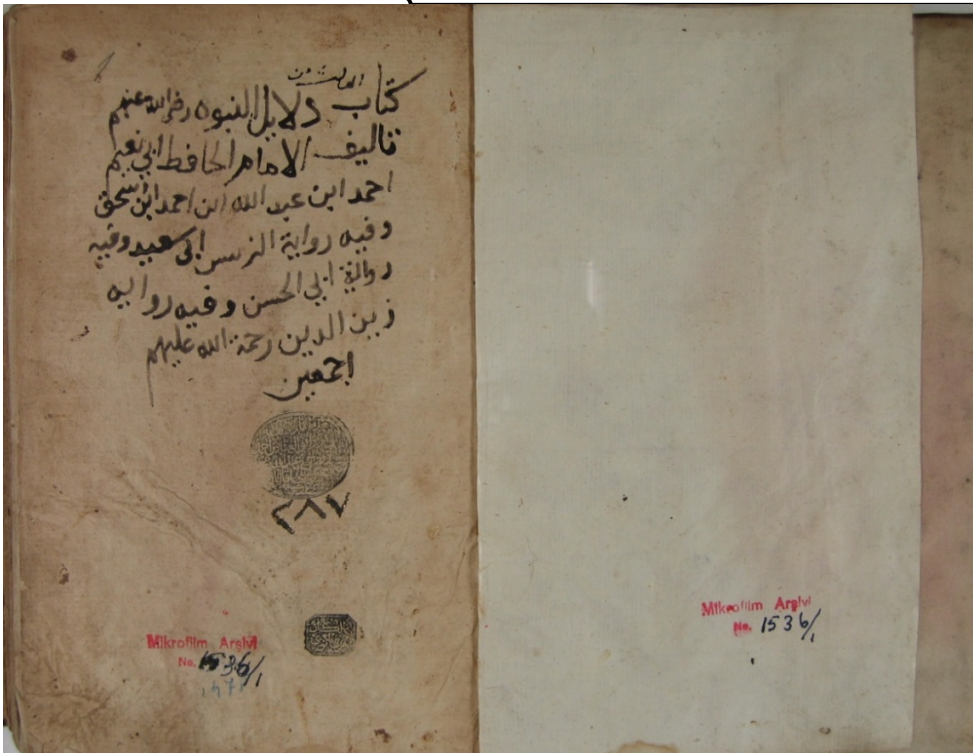 الثالث من
كتاب دلايل النبوه رضي الله عنهم
تاليف الامام الحافظ ابي نعيم
احمد ابن عبد الله ابن احمد ابن اسحق
وفيه رواية ابي سعيد وفيه
رواية ابي الحسن وفيه روايه
زين الدين رحمة الله عليهم
اجمعين
٢٨٧
Mikrofilm Arşivi
No. 1536/1
Mikrofilm Arşivi
No. 1536/1